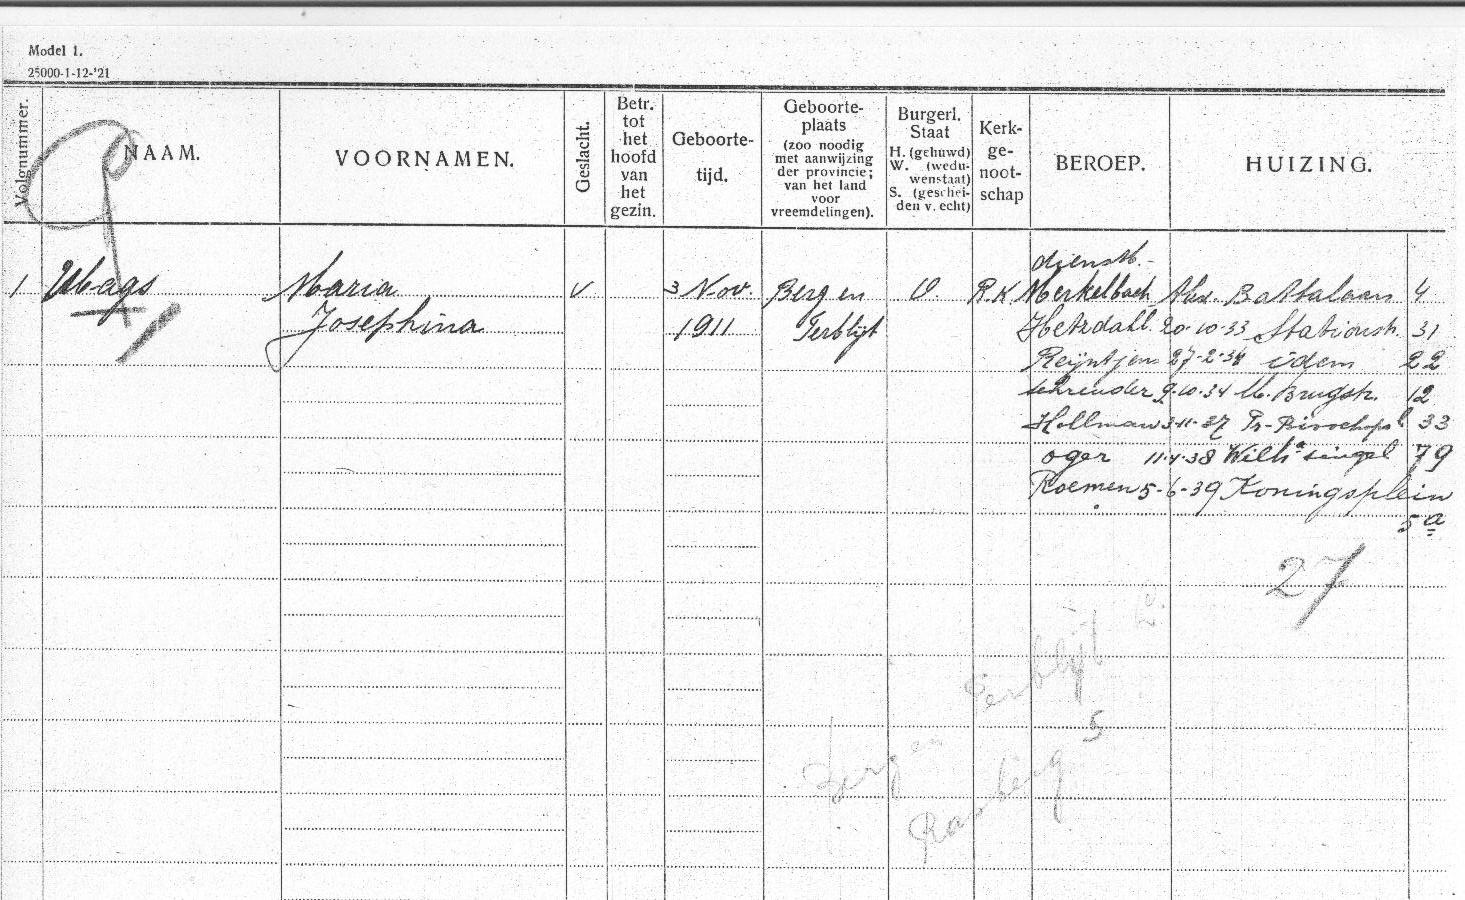 Model 1.
25000-1-12-'21
Volgnummer.
NAAM.
VOORNAMEN.
Geslacht.
Betr.
tot
het
hoofd
van
het
gezin.
Geboorte-
tijd.
Geboorte-
plaats
(zoo noodig
met aanwijzing
der provincie;
van het land
voor
vreemdelingen).
Burgerl.
Staat
H. (gehuwd)
W. (wedu-
wenstaat)
S. (geschei-
den v. echt)
Kerk-
ge-
noot-
schap
BEROEP.
HUIZING.
dienstb.-
1 Ubags Maria V 3 Nov. Bergen O. R.K Merkelbach Alex. Battalaan 4
Josephina 1911 Terblijt 20-10-33 Stationstr. 31
Reijntjens 27-2-34 idem 22
9-10-34 M. Brugstr. 12
Hollman 3-11-37 33
oger 11-4-38 Wilh.a singel 79
Roemen 5-6-39 Koningsplein
5a
27
Terblijt
5
Bergen
Rasberg